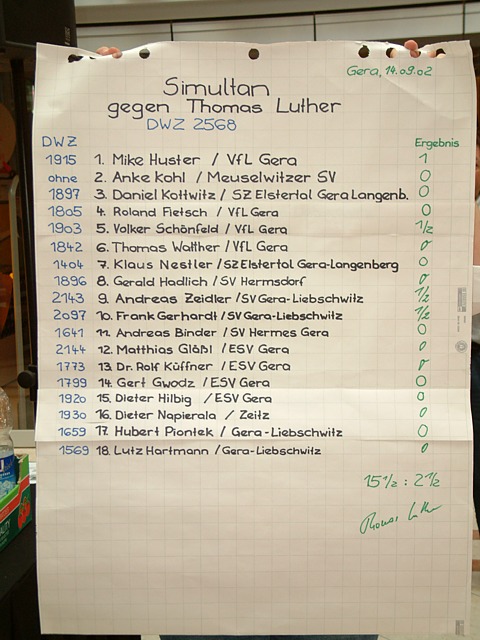 Gera, 14.09.02
Simultan
gegen Thomas Luther
DWZ 2568
DWZ Ergebnis
1915 1. Mike Huster / VfL Gera 1
ohne 2. Anke Kohl / Meuselwitzer SV 0
1897 3. Daniel Kottwitz / SZ Elstertal Gera Langenb. 0
1805 4. Roland Fietsch / VfL Gera 0
1903 5. Volker Schönfeld / VfL Gera 1/2
1842 6. Thomas Walther / VfL Gera 0
1404 7. Klaus Nestler / SZ Elstertal Gera-Langenberg 0
1896 8. Gerald Hadlich / SV Hermsdorf 0
2143 9. Andreas Zeidler / SV Gera-Liebschwitz 1/2
2097 10. Frank Gerhardt / SV Gera-Liebschwitz 1/2
1641 11. Andreas Binder / SV Hermes Gera 0
2144 12. Matthias Gläßl / ESV Gera 0
1773 13 Dr. Rolf Küffner / ESV Gera 0
1799 14 Gert Gwodz / ESV Gera 0
1920 15. Dieter Hilbig / ESV Gera 0
1930 16. Dieter Napierala / Zeitz 0
1659 17. Hubert Piontek / Gera-Liebschwitz 0
1569 18. Lutz Hartmann / Gera-Liebschwitz 0
15 1/2 : 2 1/2